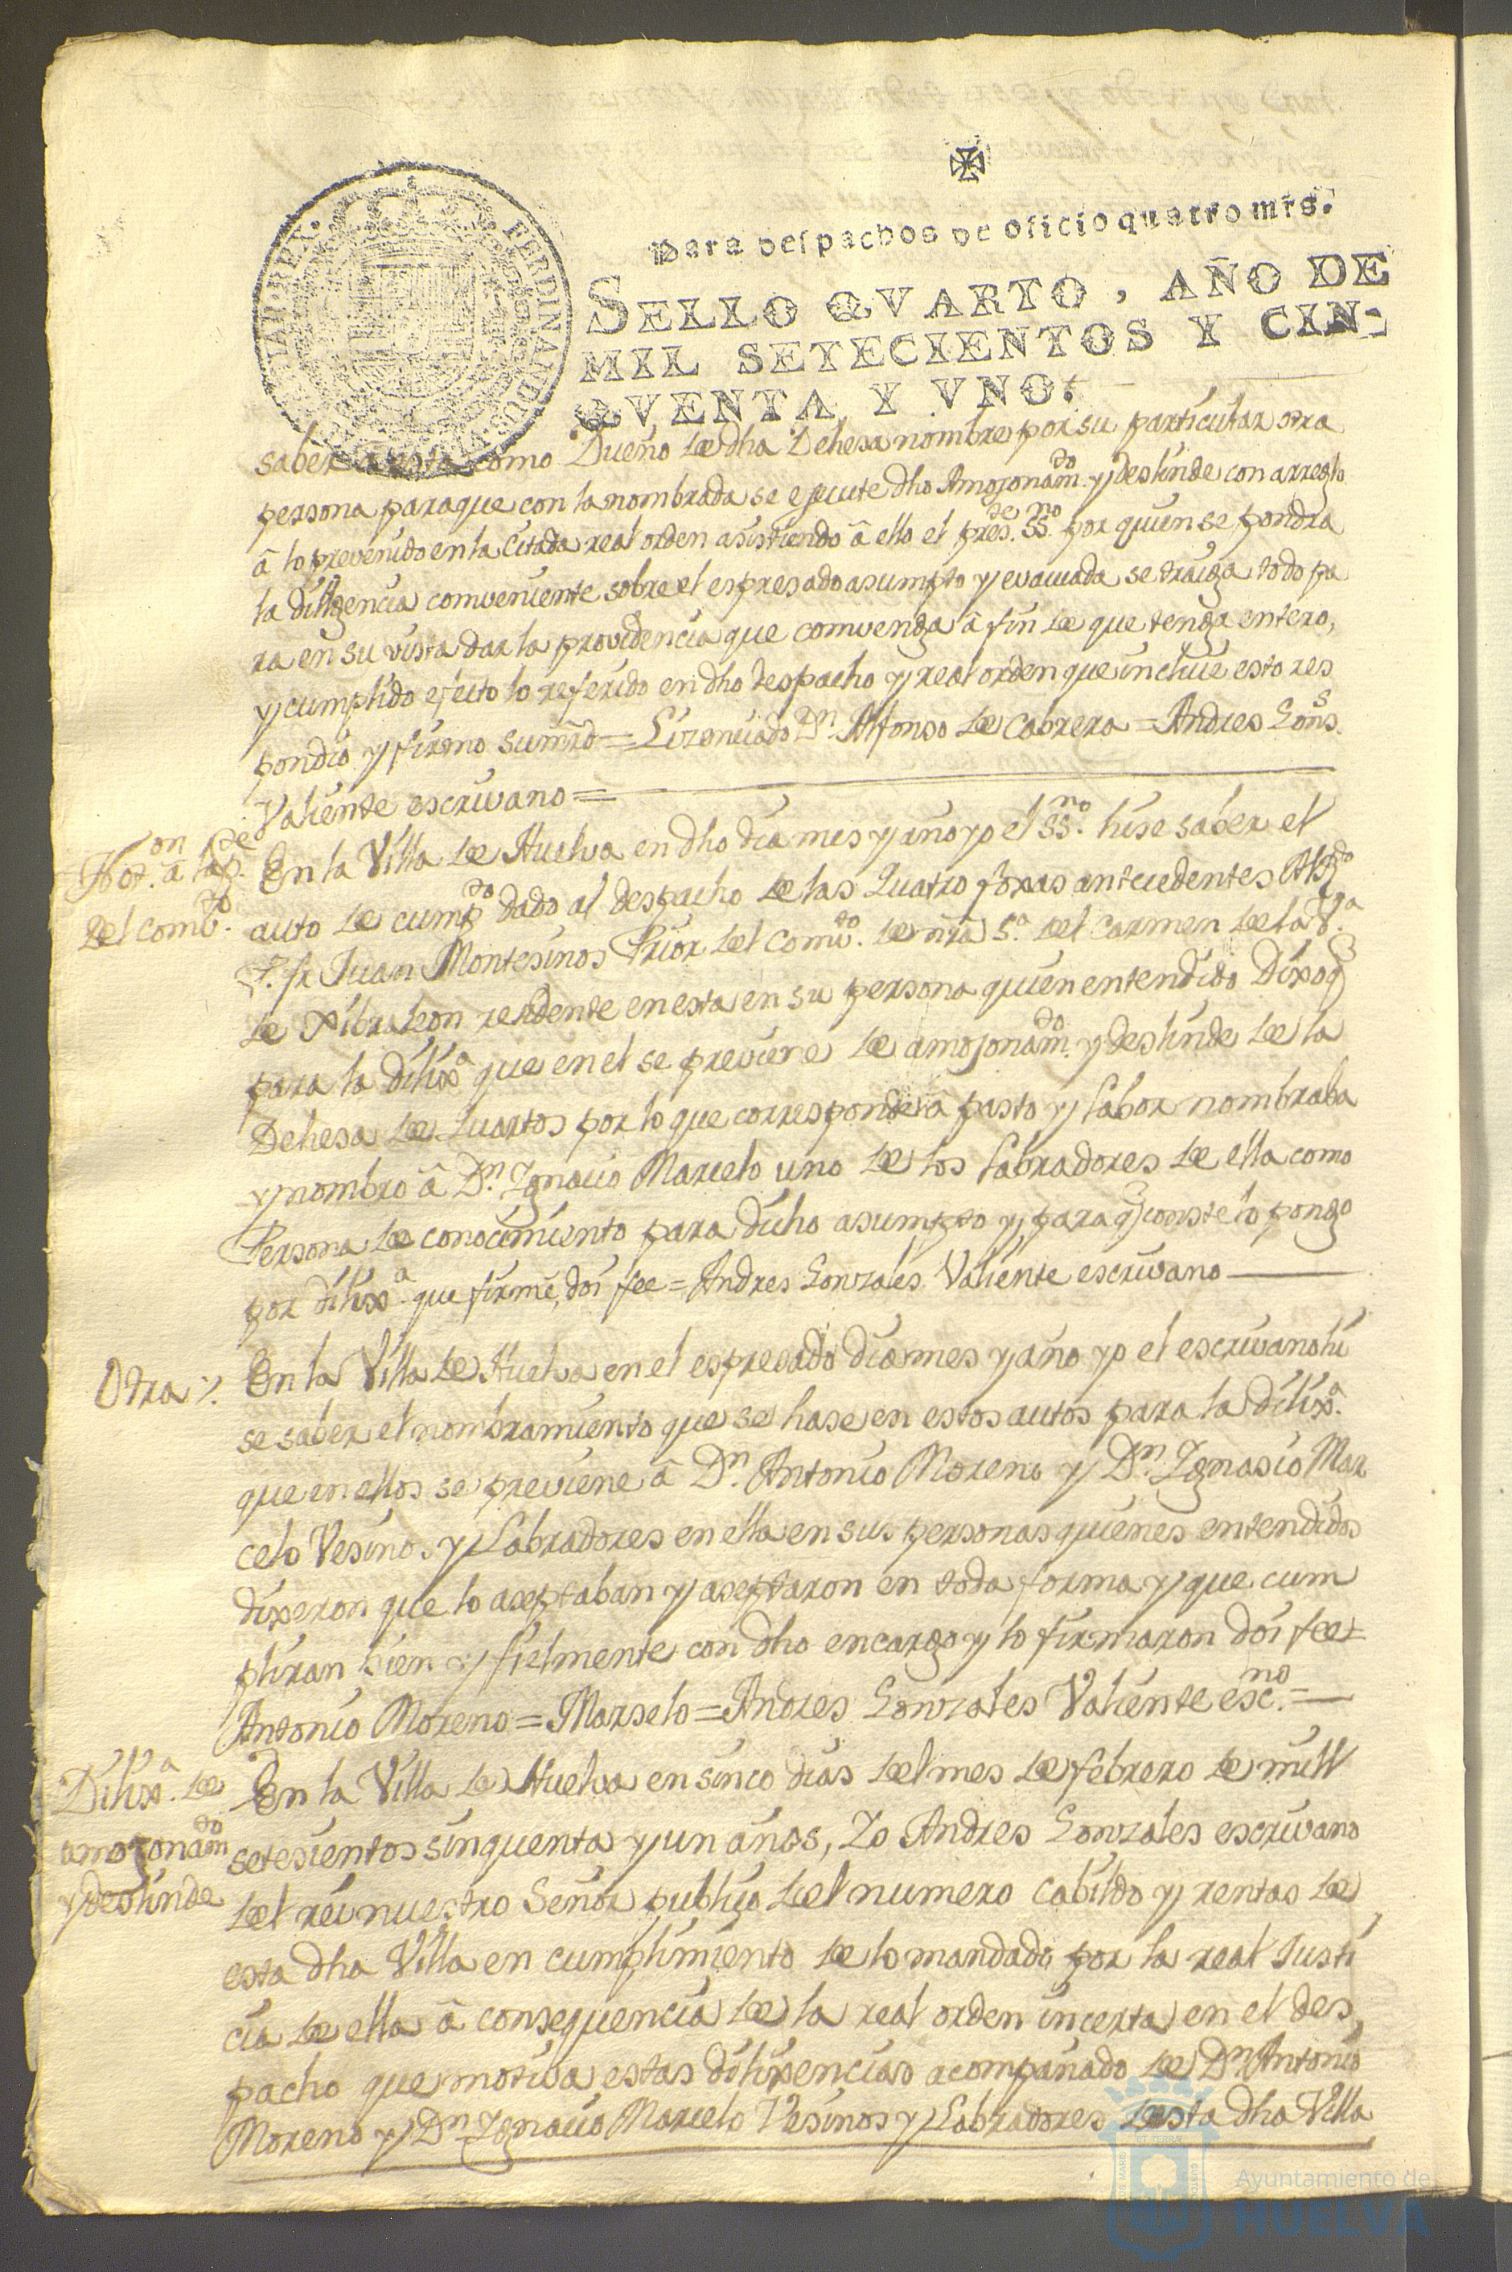 ✠
Para despachos de oficio quatro mrs.
SELLO QVARTO, AÑO DE
MIL SETECIENTOS Y CIN-
QVENTA Y VNO.
FERDINANDUS
HISPANIAR REX
saber a esta como Dueño de dha Dehesa nombre por su particular otra
persona para que con la nombrada se ejecute dho Amojonam.do y deslinde con arreglo
â lo prevenido en la citada real orden asistiendo â ello el pres.te ss.no por quien se pondra
la diligencia conveniente sobre el espresado asumpto y evacuada se traiga todo pa
ra en su vista dar la providencia que convenga â fin de que tenga entero,
y cumplido efecto lo referido en dho despacho y real orden que incluie esto res
pondio y firmo su mrd = Lizenciado Dn. Alfonso de Cabrera = Andres Gons.s
Valiente escrivano =
Not.on â la p.te
del comb.to
En la Villa de Huelva en dho dia mes y año yo el ss.no hise saber el
auto de cump.to dado al despacho de las quatro foxas antecedentes Al R.do
P. fr Juan Montesinos Prior del Comv.to de nra S.a del Carmen de la V.a
de Xibraleon residente en esta en su persona quien entendido Dixo q
para la dilix.a que en el se previene de amojonam.do y deslinde de la
Dehesa de Quartos por lo que corresponde â pasto y labor nombraba
y nombro â Dn. Ignacio Marcelo uno de los labradores de ella como
Persona de conocimiento para dicho asumpto y para q conste lo pongo
por dilix.a que firmé, doi fee = Andres Gonzales Valiente escrivano
Otra
En la Villa de Huelva en el espresado dia mes y año yo el escrivano hi
se saber el nombramiento que se hase en estos autos para la dilix.a
que en ellos se previene â Dn. Antonio Moreno y Dn. Ignasio Mar
celo Vesinos y Labradores en ella en sus personas quienes entendidos
dixeron que lo aseptaban y aseptaron en toda forma y que cum
pliran bien y fielmente con dho encargo y lo firmaron doi fee =
Antonio Moreno = Marselo = Andres Gonzales Valiente esc.no =
Dilix.a de
amojonam.do
y deslinde
En la Villa de Huelva en sinco dias del mes de febrero de mill
setesientos sinquenta y un años, Yo Andres Gonzales escrivano
del rei nuestro Señor publico del numero cabildo y rentas de
esta dha Villa en cumplimiento de lo mandado por la real Justi
cia de ella â consequencia de la real orden incerta en el des
pacho que motiva estas dilixencias acompañado de Dn Antonio
Moreno y Dn. Ignacio Marcelo Vesinos y Labradores desta dha Villa
Ayuntamiento de
HUELVA